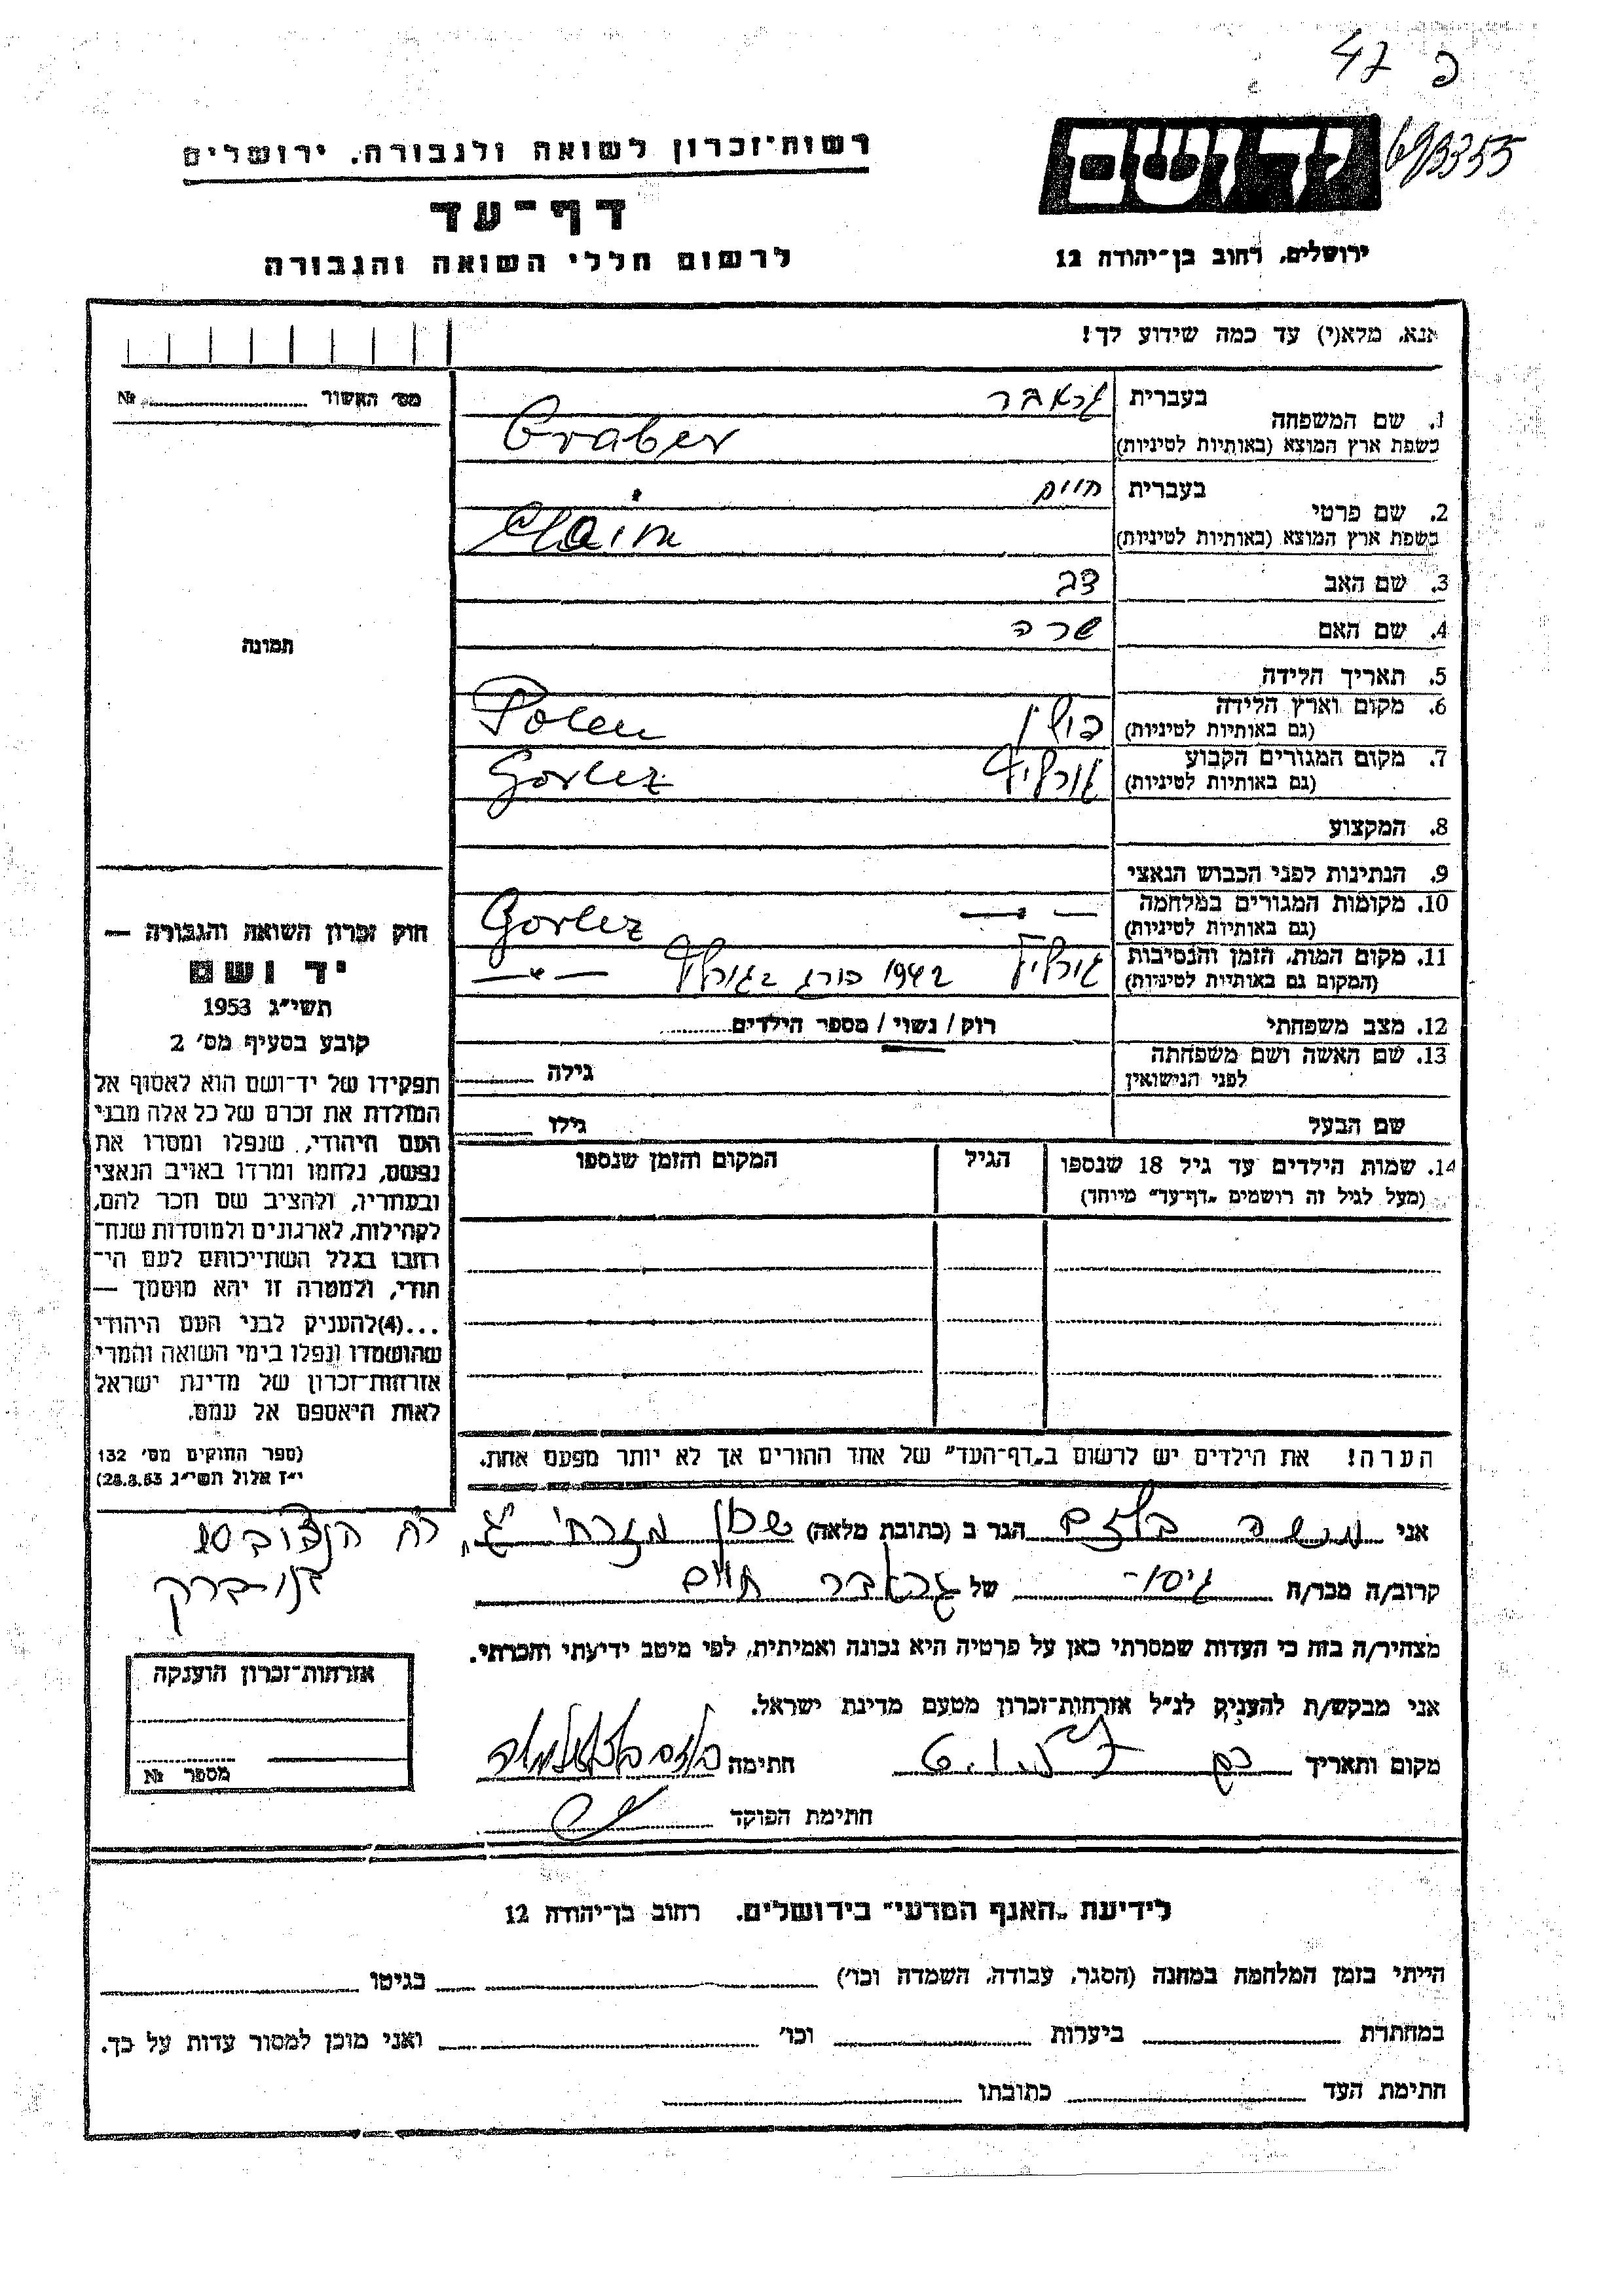 47 פ
693355
רשות־זכרון לשואה ולגבורה, ירושלים
יד ושם
דף־עד
לרשום חללי השואה והגבורה
ירושלים, רחוב בן־יהודה 12
אנא, מלא(י) עד כמה שידוע לך!
מס׳ האשור №
1. שם המשפחה
בעברית גראבר
בשפת ארץ המוצא (באותיות לטיניות) Graber
2. שם פרטי
בעברית חיים
בשפת ארץ המוצא (באותיות לטיניות) Chaim
3. שם האב צבי
4. שם האם שרה
5. תאריך הלידה
6. מקום וארץ הלידה פולין Polen
(גם באותיות לטיניות)
7. מקום המגורים הקבוע גורליץ Gorlez
(גם באותיות לטיניות)
8. המקצוע
9. הנתינות לפני הכבוש הנאצי
10. מקומות המגורים במלחמה — " — Gorlez
(גם באותיות לטיניות)
11. מקום המות, הזמן והנסיבות גורליץ 1942 הורג בגורליץ — " —
(המקום גם באותיות לטיניות)
12. מצב משפחתי רוק / נשוי / מספר הילדים
13. שם האשה ושם משפחתה גילה
לפני הנישואין
שם הבעל גילו
14. שמות הילדים עד גיל 18 שנספו הגיל המקום והזמן שנספו
(מעל לגיל זה רושמים „דף־עד״ מיוחד)
הערה! את הילדים יש לרשום ב„דף־העד״ של אחד ההורים אך לא יותר מפעם אחת.
תמונה
חוק זכרון השואה והגבורה —
יד ושם
תשי״ג 1953
קובע בסעיף מס׳ 2
תפקידו של יד־ושם הוא לאסוף אל
המולדת את זכרם של כל אלה מבני
העם היהודי, שנפלו ומסרו את
נפשם, נלחמו ומרדו באויב הנאצי
ובעוזריו, ולהציב שם וזכר להם,
לקהילות, לארגונים ולמוסדות שנח־
רבו בגלל השתייכותם לעם הי־
הודי, ולמטרה זו יהא מוסמך —
...(4)להעניק לבני העם היהודי
שהושמדו ונפלו בימי השואה והמרי
אזרחות־זכרון של מדינת ישראל
לאות היאספם אל עמם.
(ספר החוקים מס׳ 132
י״ז אלול תשי״ג 28.8.53)
אני משה הגר ב (כתובת מלאה) שכון מזרחי ג׳, רח
בני־ברק
קרוב/ה מכר/ה גיסו של גראבר חיים
מצהיר/ה בזה כי העדות שמסרתי כאן על פרטיה היא נכונה ואמיתית, לפי מיטב ידיעתי והכרתי.
אני מבקש/ת להעניק לנ״ל אזרחות־זכרון מטעם מדינת ישראל.
מקום ותאריך חתימה
חתימת הפוקד
אזרחות־זכרון הוענקה
מספר №
לידיעת „האגף המדעי״ בירושלים, רחוב בן־יהודה 12
הייתי בזמן המלחמה במחנה (הסגר, עבודה, השמדה וכו׳) בגיטו
במחתרת ביערות וכו׳ ואני מוכן למסור עדות על כך.
חתימת העד כתובתו